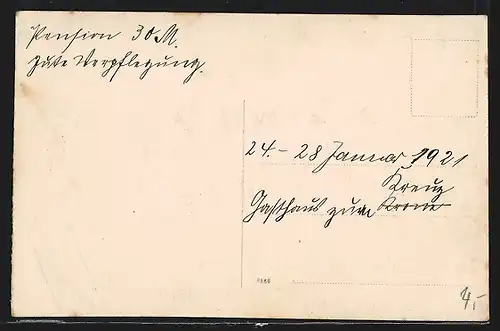 Pension 30 M.
gute Verpflegung.
24. - 28 Januar 1921
Kreuz
Gasthaus zum Krone
4,-